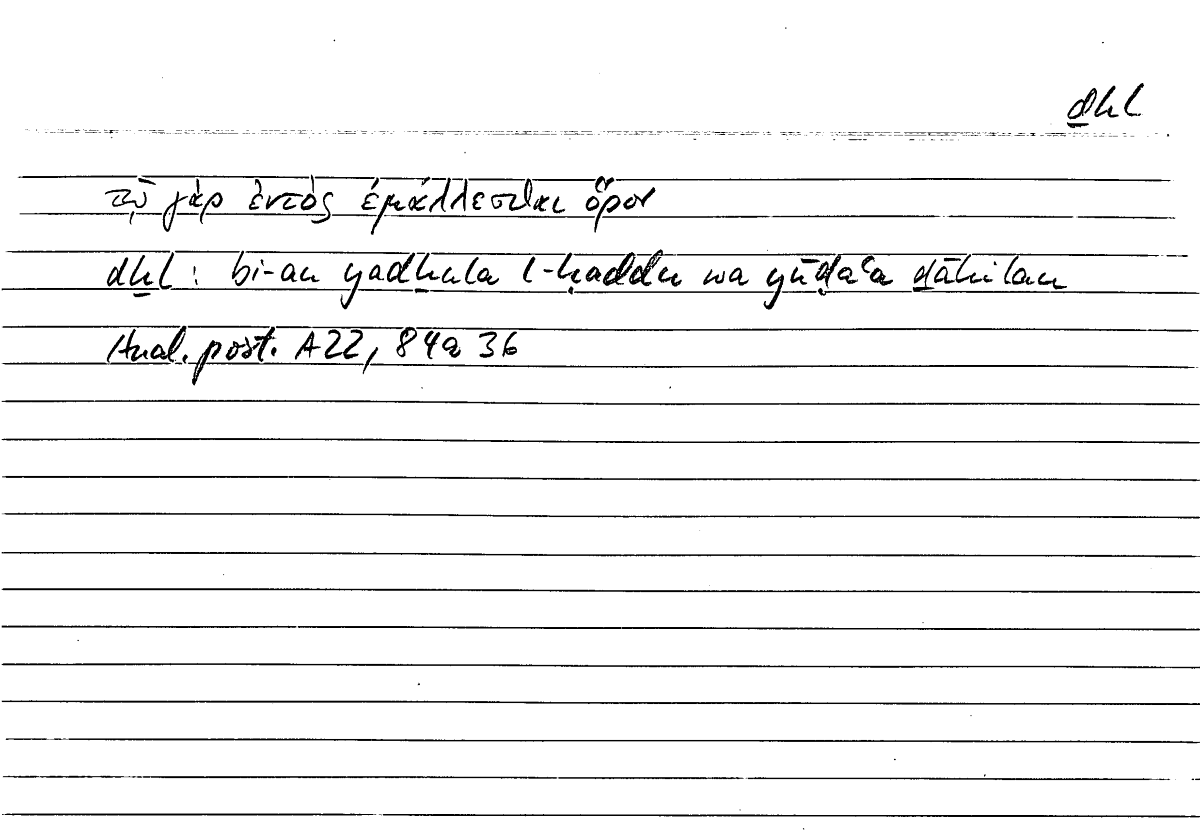 ḏhl
τῷ γὰρ ἐντὸς ἐμάλλεσθαι ὅρον
dẖl : bi-an yadẖula l-ḥaddu wa yūḍaʿa ḏāhilan
Anal. post. A22, 84a 36